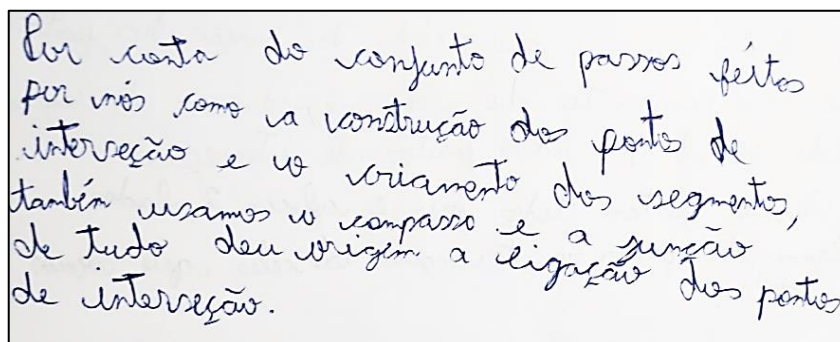 Por conta do conjunto de passos feitos
por nós como a construção dos pontos de
interseção e o criamento dos segmentos,
tanbén usamos o compasso e a junção
de tudo deu origem a ligação dos pontos
de interseção.